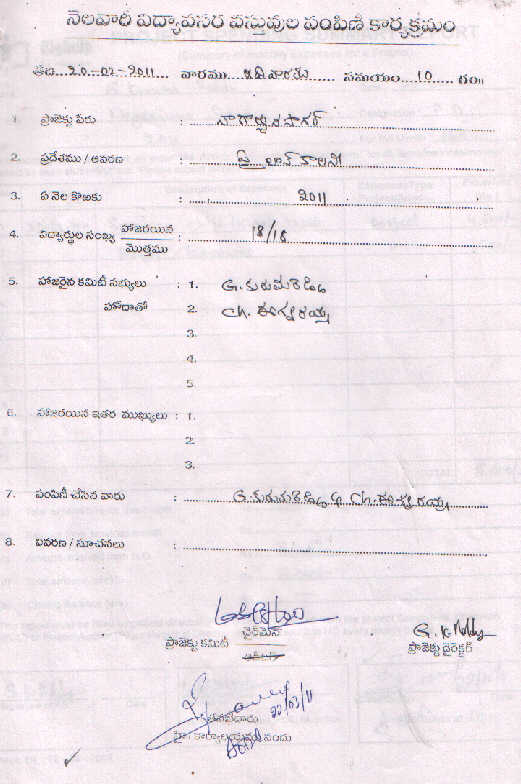 నెలవారీ విద్యావసర వస్తువుల పంపిణీ కార్యక్రమం
తేది...20-02-2011...... వారము...ఆదివారము...... సమయం...10......గం॥
1. ప్రాజెక్టు పేరు : నాగార్జునసాగర్
2. ప్రదేశము / ఆవరణ : కాలనీ
3. ఏ నెల కొఱకు : 2011
4. విద్యార్థుల సంఖ్య హాజరయిన : 18/18
మొత్తము
5. హాజరైన కమిటీ సభ్యులు : 1. G. గురుమారెడ్డి
హోదాతో 2. Ch. ఈశ్వరయ్య
3.
4.
5.
6. హాజరయిన ఇతర ముఖ్యులు : 1.
2.
3.
7. పంపిణీ చేసిన వారు : G. గురుమారెడ్డి & Ch. ఈశ్వరయ్య
8. వివరణ / సూచనలు :
ప్రాజెక్టు కమిటీ చైర్మెన్
G. K Reddy
ప్రాజెక్టు డైరెక్టర్
20/02/11
కార్యాలయము నందు